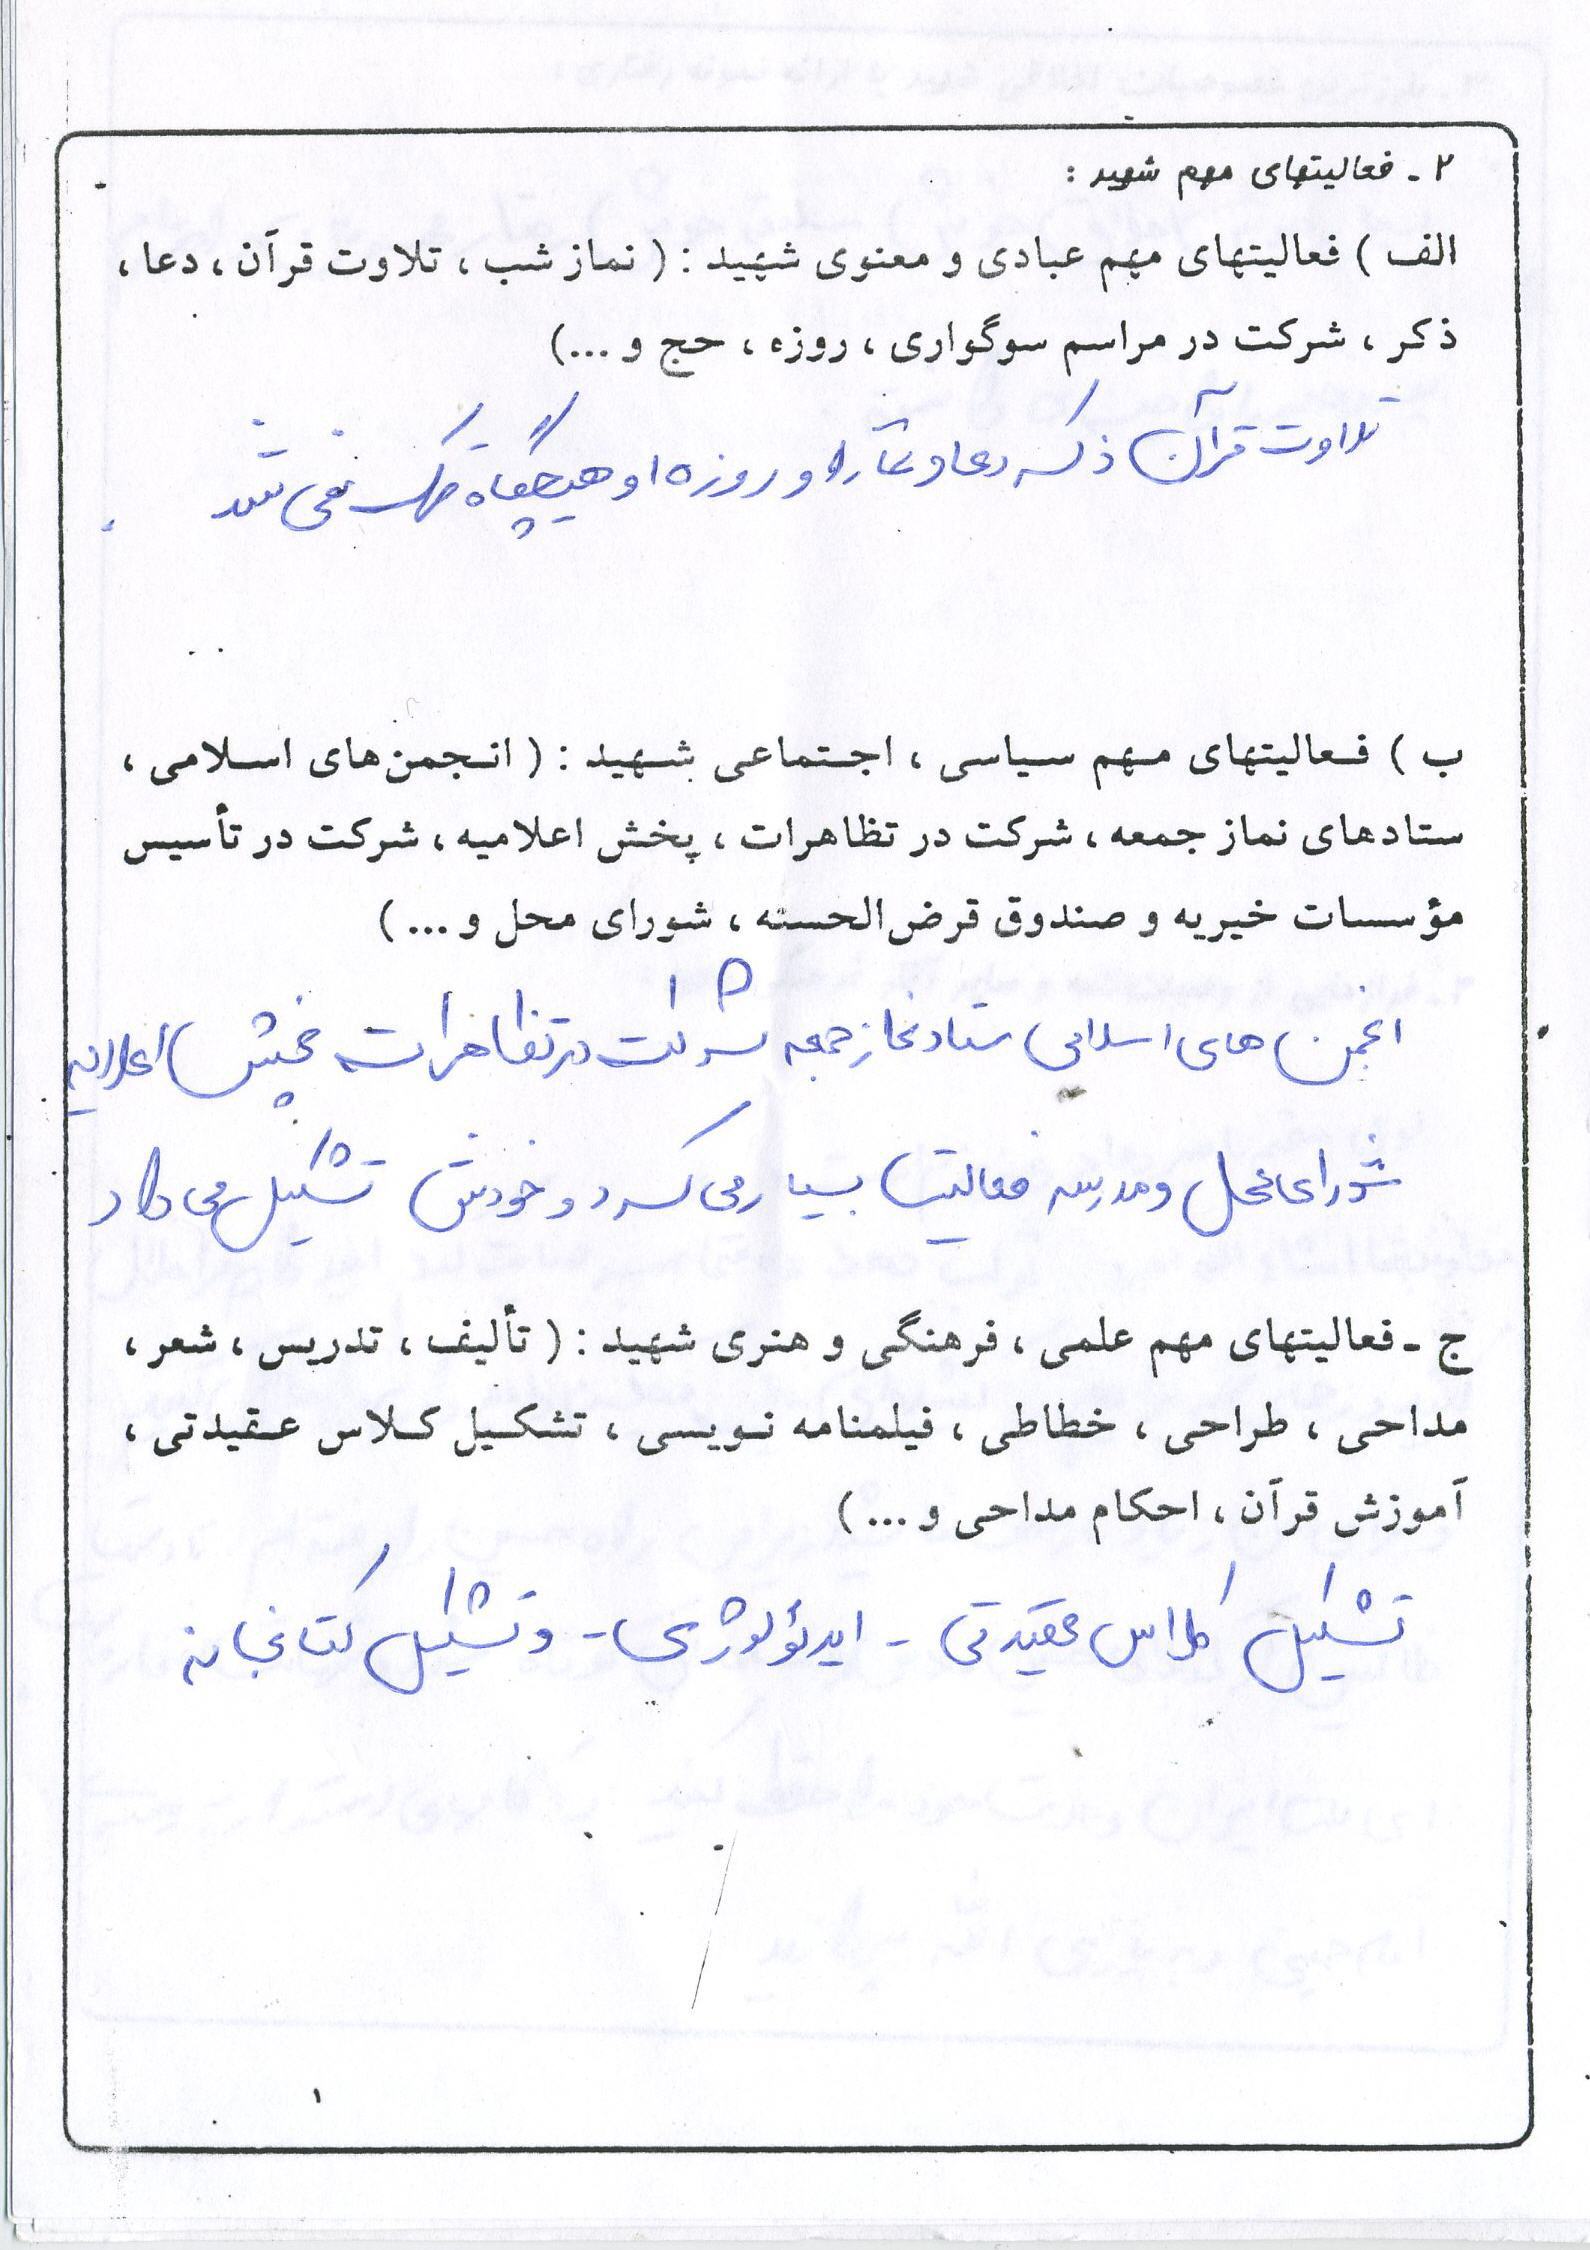 ۲ - فعالیتهای مهم شهید :
الف ) فعالیتهای مهم عبادی و معنوی شهید : ( نماز شب ، تلاوت قرآن ، دعا ،
ذکر ، شرکت در مراسم سوگواری ، روزه ، حج و ...)
تلاوت قرآن ذکر دعا و نماز او روزه او هیچگاه ترک نمی شد
ب ) فعالیتهای مهم سیاسی ، اجتماعی شهید : ( انجمن‌های اسلامی ،
ستادهای نماز جمعه ، شرکت در تظاهرات ، پخش اعلامیه ، شرکت در تأسیس
مؤسسات خیریه و صندوق قرض‌الحسنه ، شورای محل و ... )
انجمن های اسلامی ستاد نماز جمعه شرکت در تظاهرات پخش اعلامیه
شورای محل و مدرسه فعالیت بسیار می کرد و خودش تشکیل می داد
ج - فعالیتهای مهم علمی ، فرهنگی و هنری شهید : ( تألیف ، تدریس ، شعر ،
مداحی ، طراحی ، خطاطی ، فیلمنامه نویسی ، تشکیل کلاس عقیدتی ،
آموزش قرآن ، احکام مداحی و ... )
تشکیل کلاس عقیدتی - ایدئولوژی - و تشکیل کتابخانه
۱